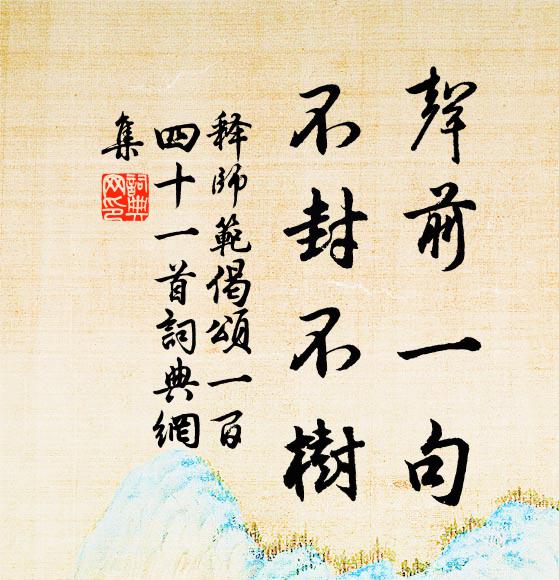 聲前一句
不封不樹
释師範偈頌一百
四十一首詞典網
集
詞典网印